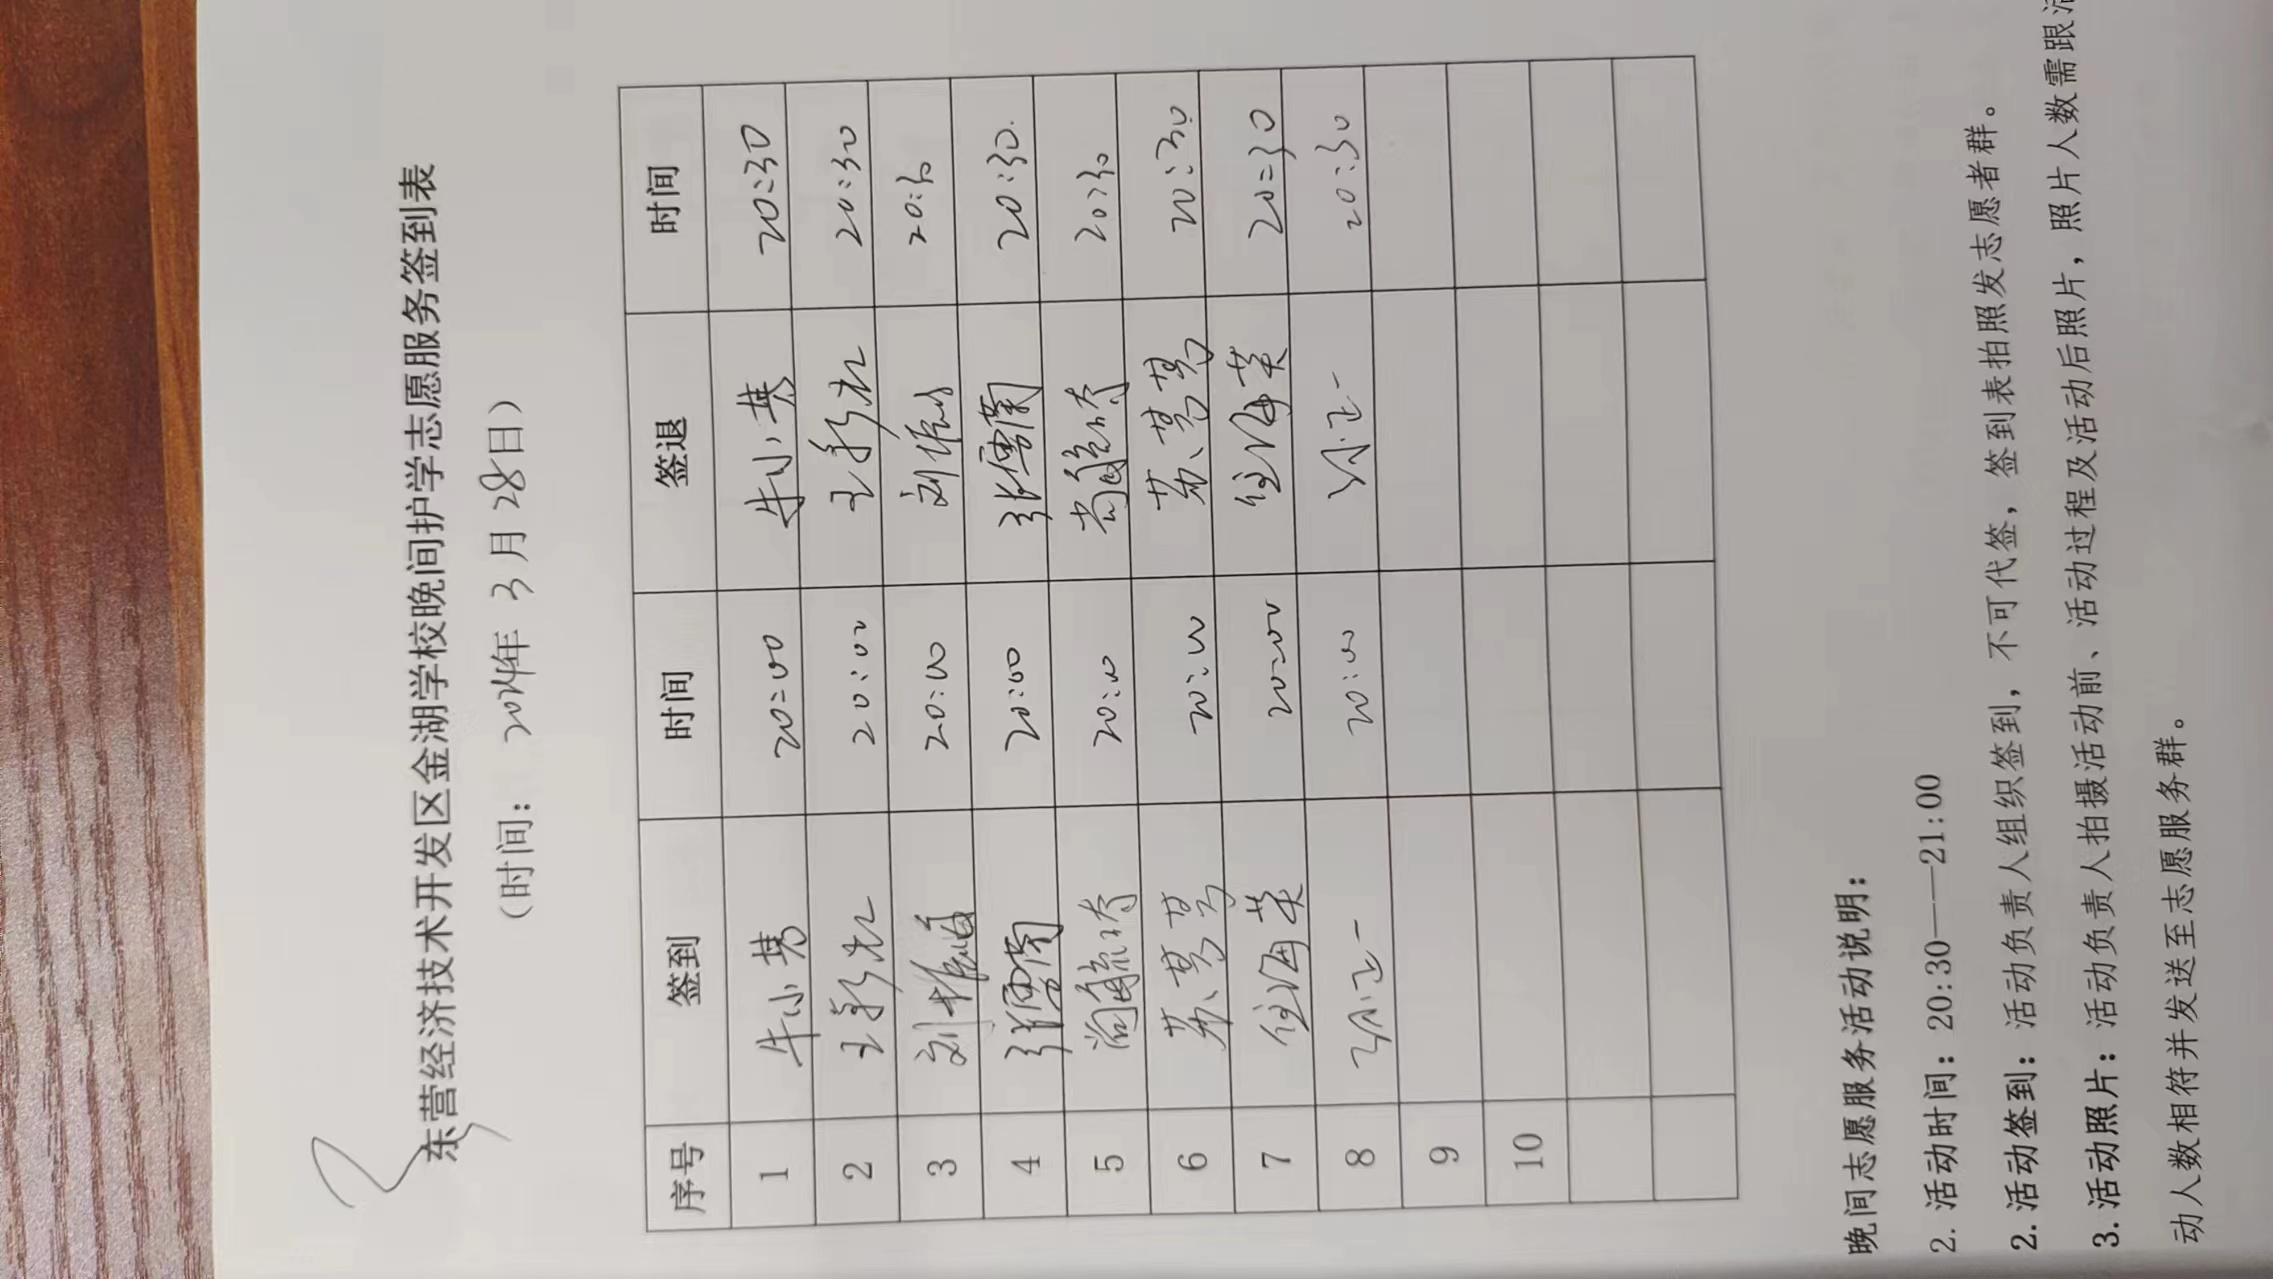 东营经济技术开发区金湖学校晚间护学志愿服务签到表
(时间: 2024年 3 月 28日)
序号 签到 时间 签退 时间
1 牛小慧 20:00 牛小慧 20:30
2 王彩虹 20:00 王彩虹 20:30
3 刘振 20:00 刘振 20:30
4 张雪南 20:00 张雪南 20:30
5 尚毓琦 20:00 尚毓琦 20:30
6 苏莴莴 20:00 苏莴莴 20:30
7 任海英 20:00 任海英 20:30
8 20:00 20:30
9
10
晚间志愿服务活动说明:
2. 活动时间: 20:30——21:00
2. 活动签到: 活动负责人组织签到, 不可代签, 签到表拍照发志愿者群。
3. 活动照片: 活动负责人拍摄活动前、活动过程及活动后照片, 照片人数需跟活
动人数相符并发送至志愿服务群。